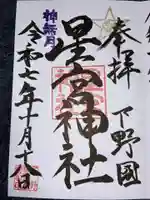 奉拝 下野國
神無月
星宮神社
令和七年十月十八日